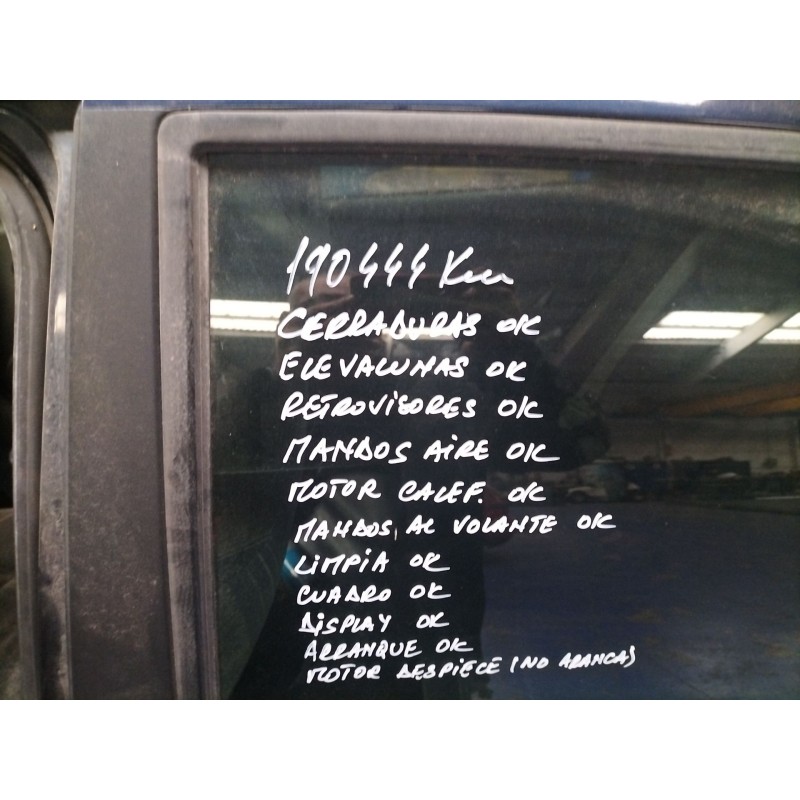 190444 Km
CERRADURAS OK
ELEVALUNAS OK
RETROVISORES OK
MANDOS AIRE OK
MOTOR CALEF. OK
MANDOS, AL VOLANTE OK
LIMPIA OK
CUADRO OK
DISPLAY OK
ARRANQUE OK
MOTOR DESPIECE (NO ARANCA)